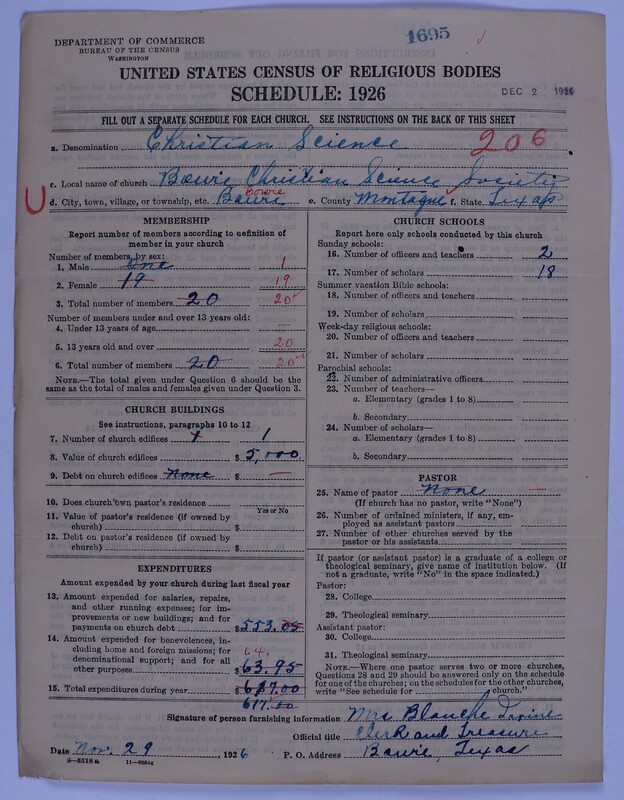 1695
DEPARTMENT OF COMMERCE
BUREAU OF THE CENSUS
WASHINGTON
UNITED STATES CENSUS OF RELIGIOUS BODIES
SCHEDULE: 1926
DEC 2 1926
FILL OUT A SEPARATE SCHEDULE FOR EACH CHURCH. SEE INSTRUCTIONS ON THE BACK OF THIS SHEET
a. Denomination Christian Science 206
c. Local name of church Bowie Christian Science Society
U d. City, town, village, or township, etc. Bowie Bowie e. County Montague f. State Texas
MEMBERSHIP
Report number of members according to definition of
member in your church
Number of members, by sex:
1. Male one 1
2. Female 19 19
3. Total number of members 20 20
Number of members under and over 13 years old:
4. Under 13 years of age —
5. 13 years old and over 20
6. Total number of members 20 20
NOTE.—The total given under Question 6 should be
same as the total of males and females given under Question 3.
CHURCH BUILDINGS
See instructions, paragraphs 10 to 12
7. Number of church edifices 1 1
8. Value of church edifices $ 5,000
9. Debt on church edifices None $ —
10. Does church own pastor's residence
Yes or No
11. Value of pastor's residence (if owned by
church) $
12. Debt on pastor's residence (if owned by
church) $
EXPENDITURES
Amount expended by your church during last fiscal year
13. Amount expended for salaries, repairs,
and other running expenses; for im-
provements or new buildings; and for
payments on church debt $ 553.05
14. Amount expended for benevolences, in-
cluding home and foreign missions; for 64.
denominational support; and for all
other purposes $ 63.95
15. Total expenditures during year $ 617.00
617.00
CHURCH SCHOOLS
Report here only schools conducted by this church
Sunday schools:
16. Number of officers and teachers 2
17. Number of scholars 18
Summer vacation Bible schools:
18. Number of officers and teachers
19. Number of scholars
Week-day religious schools:
20. Number of officers and teachers
21. Number of scholars
Parochial schools:
22. Number of administrative officers
23. Number of teachers—
a. Elementary (grades 1 to 8)
b. Secondary
24. Number of scholars—
a. Elementary (grades 1 to 8)
b. Secondary
PASTOR
25. Name of pastor None —
(If church has no pastor, write "None")
26. Number of ordained ministers, if any, em-
ployed as assistant pastors
27. Number of other churches served by the
pastor or his assistants
If pastor (or assistant pastor) is a graduate of a college or
theological seminary, give name of institution below. (If
not a graduate, write "No" in the space indicated.)
Pastor:
28. College
29. Theological seminary
Assistant pastor:
30. College
31. Theological seminary
NOTE.—Where one pastor serves two or more churches,
Questions 28 and 29 should be answered only on the schedule
for one of the churches; on the schedules for the other churches,
write "See schedule for church."
Signature of person furnishing information Mrs Blanche Irvine
Official title Clerk and Treasure
Date Nov. 29, 1926 P. O. Address Bowie, Texas
8-5518 a